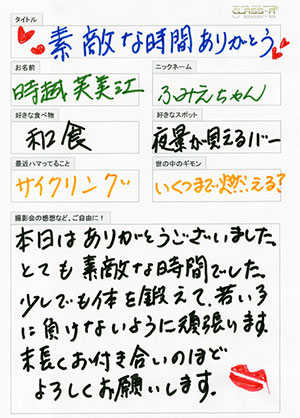 CLASS-A
タイトル
素敵な時間ありがとう
お名前
ニックネーム
時越芙美江
ふみえちゃん
好きな食べ物
好きなスポット
和食
夜景が見えるバー
最近ハマってること
世の中のギモン
サイクリング
いくつまで燃える?
撮影会の感想など、ご自由に!
本日はありがとうございました。
とても素敵な時間でした。
少しでも体を鍛えて、若い子
に負けないように頑張ります。
末長くお付き合いのほど
よろしくお願いします。